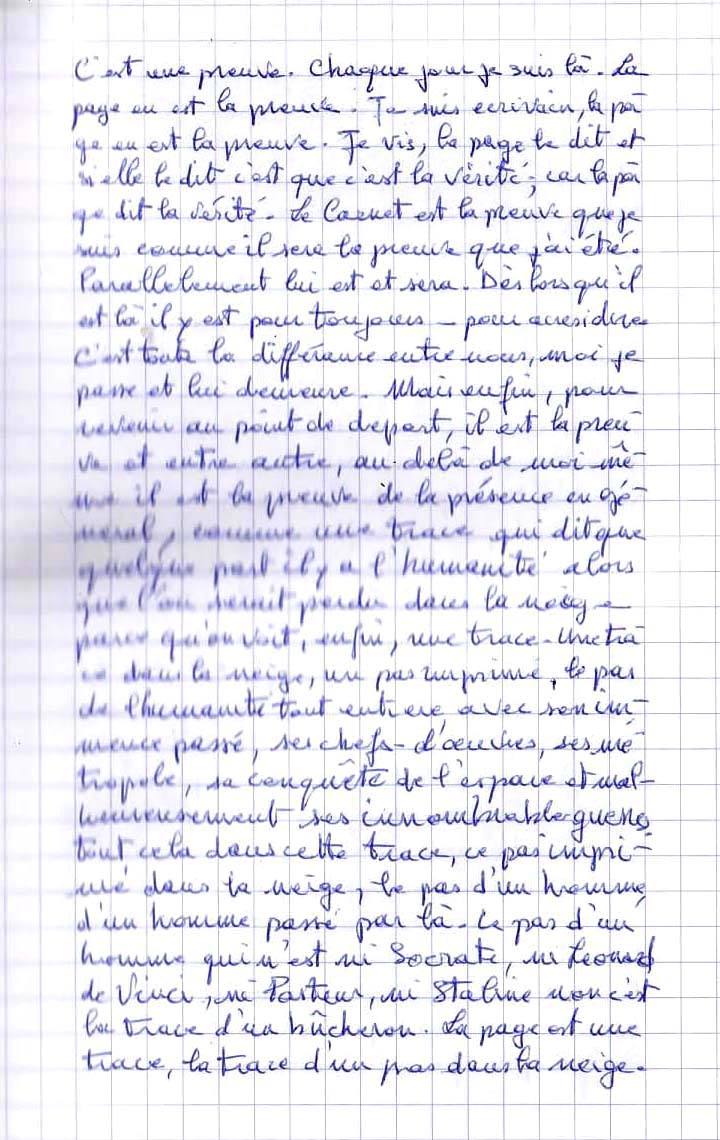 C'est une preuve. Chaque jour je suis là. La
page en est la preuve. Je suis ecrivain, la pa
ge en est la preuve. Je vis, la page le dit et
si elle le dit c'est que c'est la vérité, car la pa
ge dit la vérité. Le Carnet est la preuve que je
suis comme il sera la preuve que j'ai été.
Parallelement lui est et sera. Dès lors qu'il
est là il y est pour toujours – pour ainsi dire
C'est toute la différence entre nous, moi je
passe et lui demeure. Mais enfin, pour
revenir au point de depart, il est la preu
ve et entre autre, au-delà de moi mê-
me il est la preuve de la présence en gé-
neral, comme une trace qui dit que
quelque part il y a l'humanité alors
que l'on serait perdu dans la neige
parce qu'on voit, enfin, une trace. Une tra
ce dans la neige, un pas imprimé, le pas
de l'humanité tout entiere, avec son im-
mence passé, ses chefs-d'œuvres, ses mé
tropole, sa conquête de l'espace et mal-
heureusement ses innombrable guerres
tout cela dans cette trace, ce pas impri-
mé dans la neige, le pas d'un homme
d'un homme passé par là. Le pas d'un
homme qui n'est ni Socrate, ni Léonard
de Vinci, ni Pasteur, ni Staline non c'est
la trace d'un bûcheron. La page est une
trace, la trace d'un pas dans la neige.